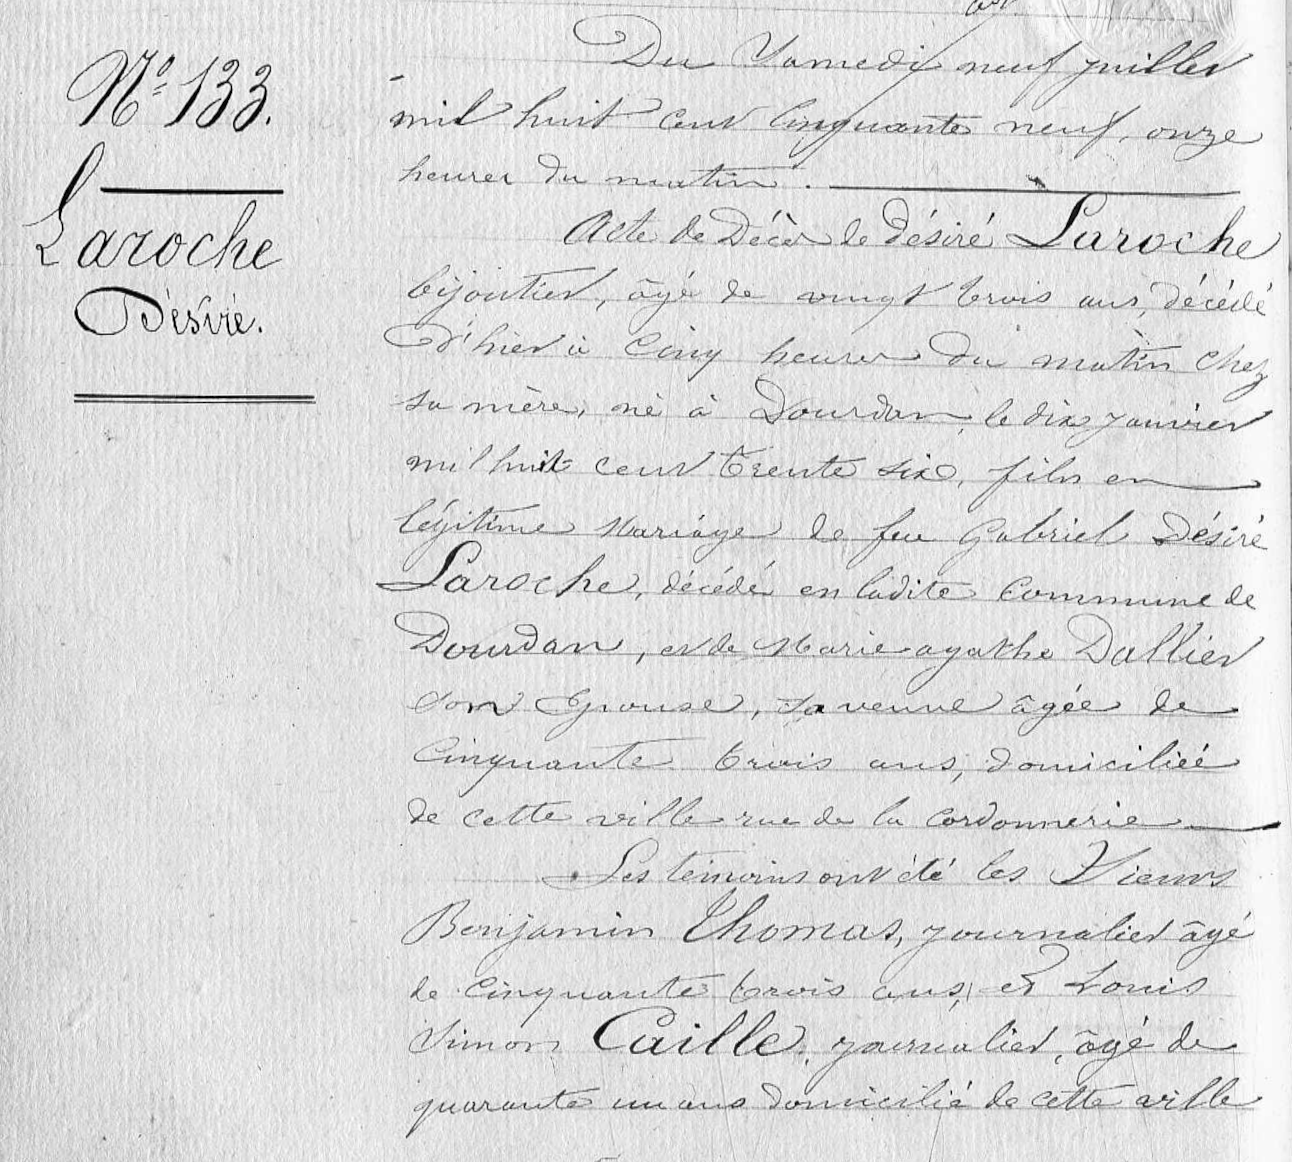 N° 133.
Laroche
Désiré.
Du Samedi neuf juillet
mil huit cent cinquante neuf, onze
heures du matin.
Acte de Décès de Désiré Laroche
bijoutier, âgé de vingt trois ans, décédé
d'hier à cinq heures du matin chez
sa mère, né à Dourdan, le dix janvier
mil huit cent trente six, fils en
légitime Mariage de feu Gabriel Désiré
Laroche, décédé en ladite Commune de
Dourdan, et de Marie agathe Dallier
son Epouse, sa veuve âgée de
Cinquante trois ans, domiciliée
de cette ville rue de la Cordonnerie
Les témoins ont été les Sieurs
Benjamin Thomas, journalier âgé
de cinquante trois ans, et Louis
Simon Caille, journalier, âgé de
quarante un ans domicilié de cette ville